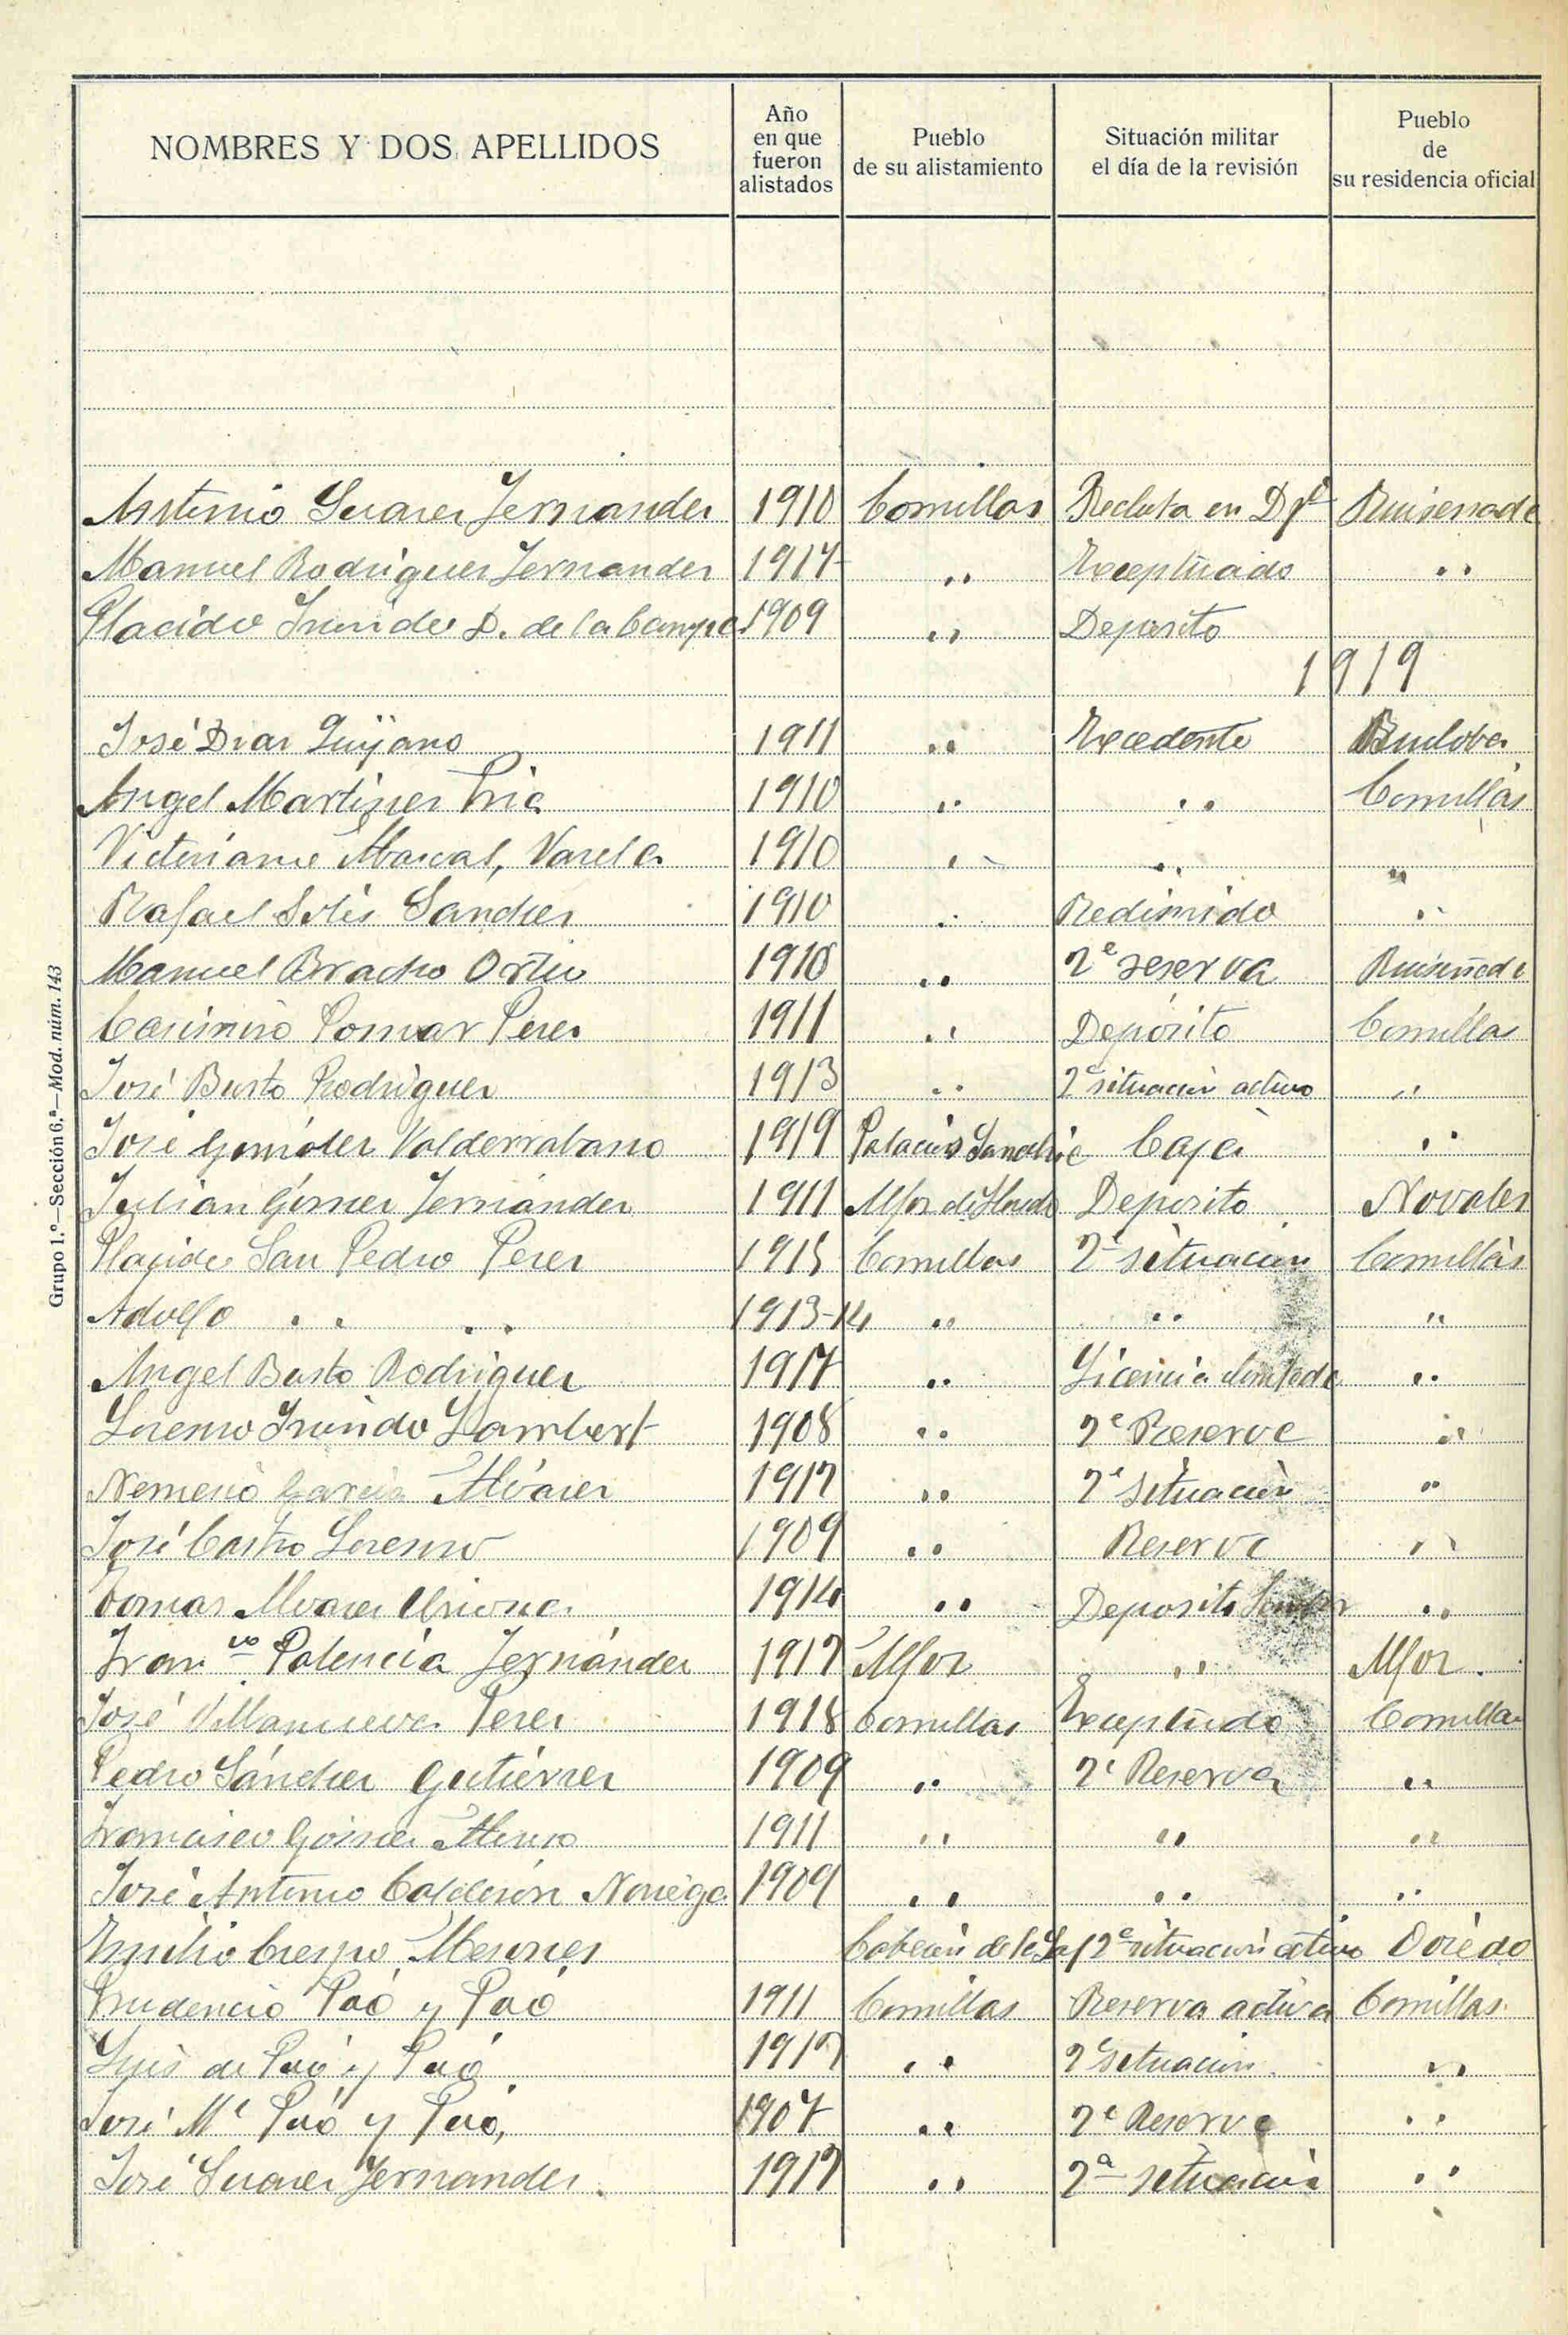 NOMBRES Y DOS APELLIDOS | Año en que fueron alistados | Pueblo de su alistamiento | Situación militar el día de la revisión | Pueblo de su residencia oficial
Antonio Suarez Fernandez 1910 Comillas Recluta en Dpt Ruisenada
Manuel Rodriguez Fernandez 1917 " Exceptuado "
Placido Inundo D. de la Campa 1909 " Deposito
1919
José Diaz Quijano 1911 " Excedente Rudoba
Angel Martinez Pria 1910 " " Comillas
Victoriano Mascal, Varela 1910 " " "
Rafael Solis Sanchez 1910 " Redimido "
Manuel Bracho Ortiz 1910 " 2ª reserva Ruiseñada
Casimiro Pomar Perez 1911 " Depósito Comillas
José Busto Rodriguez 1913 " 2ª situación activo "
José González Valderrabano 1919 Palacios Caja "
Julian Gómez Fernández 1911 Alfoz de Lloredo Deposito Novales
Placido San Pedro Perez 1915 Comillas 2ª situacion Comillas
Adolfo " " " 1913-14 " " "
Angel Busto Rodriguez 1917 " Licencia ilimitada "
Lorenzo Inundo Lambert 1908 " 2ª Reserva "
Nemesio Garcia Alvarez 1917 " 2ª situación "
José Castro Lorenzo 1909 " Reserva "
Tomas Alvarez 1914 " Deposito "
Franco Palencia Fernández 1917 Alfoz " Alfoz.
José Villanueva Perez 1918 Comillas Exceptuado Comillas
Pedro Sánchez Gutiérrez 1909 " 2ª Reserva "
Francisco Gómez Alonso 1911 " " "
José Antonio Calderón Noriega 1909 " " "
Emilio Crespo Mesones Cabezón de la Sal 2ª situación activo Oviedo
Prudencio Poó y Poó 1911 Comillas Reserva activa Comillas.
Luis de Poó y Poó 1917 " 2ª situacion. "
José Mª Poó y Poó, 1907 " 2ª Reserva "
José Suarez Fernandez. 1917 " 2ª situación "
Grupo 1.º—Sección 6.ª—Mod. núm. 143